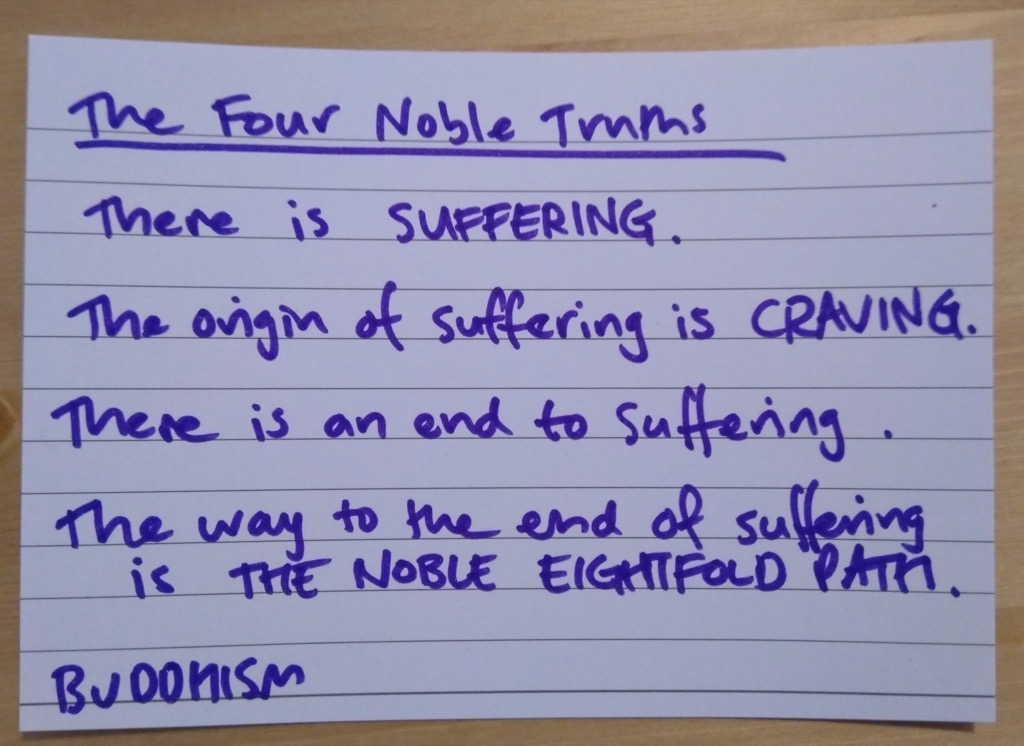 The Four Noble Truths
There is SUFFERING.
The origin of suffering is CRAVING.
There is an end to suffering.
The way to the end of suffering
is THE NOBLE EIGHTFOLD PATH.
BUDDHISM